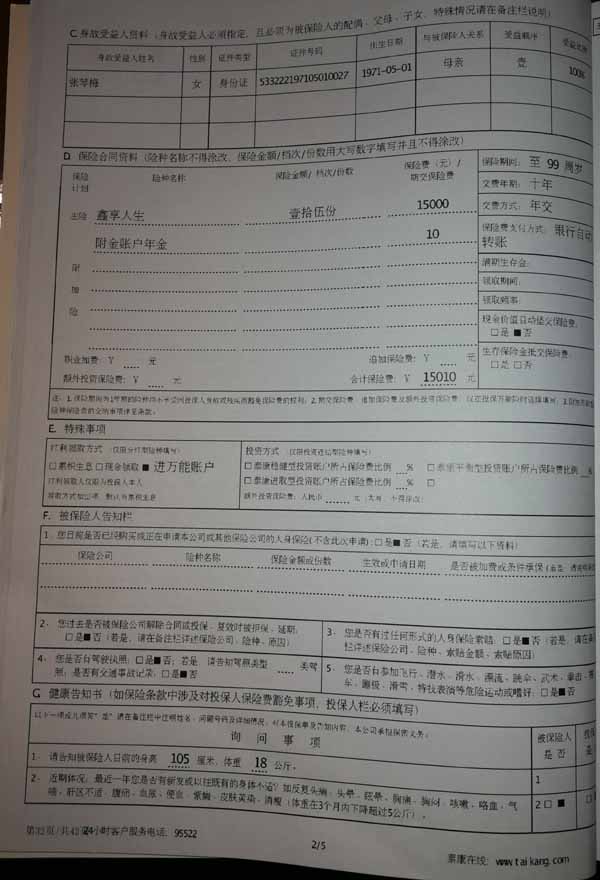 C.身故受益人资料(身故受益人必须指定,且必须为被保险人的配偶、父母、子女,特殊情况请在备注栏说明)
身故受益人姓名 性别 证件类型 证件号码 出生日期 与被保险人关系 受益顺序 受益比例
张琴梅 女 身份证 533222197105010027 1971-05-01 母亲 壹 100%
D. 保险合同资料(险种名称不得涂改、保险金额/档次/份数用大写数字填写并且不得涂改)
保险计划 险种名称 保险金额/ 档次/份数 保险费(元)/期交保险费
主险 鑫享人生 壹拾伍份 15000
附金账户年金 10
附
加
险
职业加费:¥ 元 追加保险费:¥ 元
额外投资保险费:¥ 元 合计保险费:¥ 15010 元
保险期间: 至 99 周岁
交费年期: 十年
交费方式: 年交
保险费支付方式: 银行自动转账
满期生存金:
领取期间:
领取频率:
现金价值自动垫交保险费:
□是 ■否
生存保险金抵交保险费:
□是 □否
E. 特殊事项
红利领取方式 (仅限分红型险种填写)
□累积生息 □现金领取 ■ 进万能账户
红利领取人仅限为投保人本人
投资方式 (仅限投资连结型险种填写)
□泰康稳健型投资账户所占保险费比例 %
□泰康平衡型投资账户所占保险费比例 %
□泰康进取型投资账户所占保险费比例 %
□
额外投资保险费:人民币 元(大写,不得涂改)
F. 被保险人告知栏
1、您目前是否已经购买或正在申请本公司或其他保险公司的人身保险(不含此次申请):□是■否(若是,请填写以下资料)
保险公司 险种名称 保险金额或份数 生效或申请日期 是否被加费或条件承保
2、您过去是否被保险公司解除合同或投保、复效时被拒保、延期:
□是■否(若是,请在备注栏详述保险公司、险种、原因)
3、您是否有过任何形式的人身保险索赔:□是■否(若是,请在备
栏详述保险公司、险种、索赔金额、索赔原因)
4、您是否有驾驶执照:□是■否;若是,请告知驾照类型 类驾
照;是否有交通事故记录:□是■否
5、您是否有参加飞行、潜水、滑水、漂流、跳伞、武术、拳击、
车、蹦极、滑雪、特技表演等危险运动或嗜好:□是■否
G 健康告知书(如保险条款中涉及对投保人保险费豁免事项,投保人栏必须填写)
询 问 事 项
被保险人
是 否
1、请告知被保险人目前的身高 105 厘米,体重 18 公斤。
1
2、近期体况:最近一年您是否有新发或以往既有的身体不适?如反复头痛、头晕、眩晕、胸痛、胸闷、咳嗽、咯血、气
喘、肝区不适、腹痛、血尿、便血、紫癜、皮肤黄染、消瘦(体重在3个月内下降超过5公斤)。
2□ ■
24小时客户服务电话:95522
2/5
泰康在线:www.taikang.com